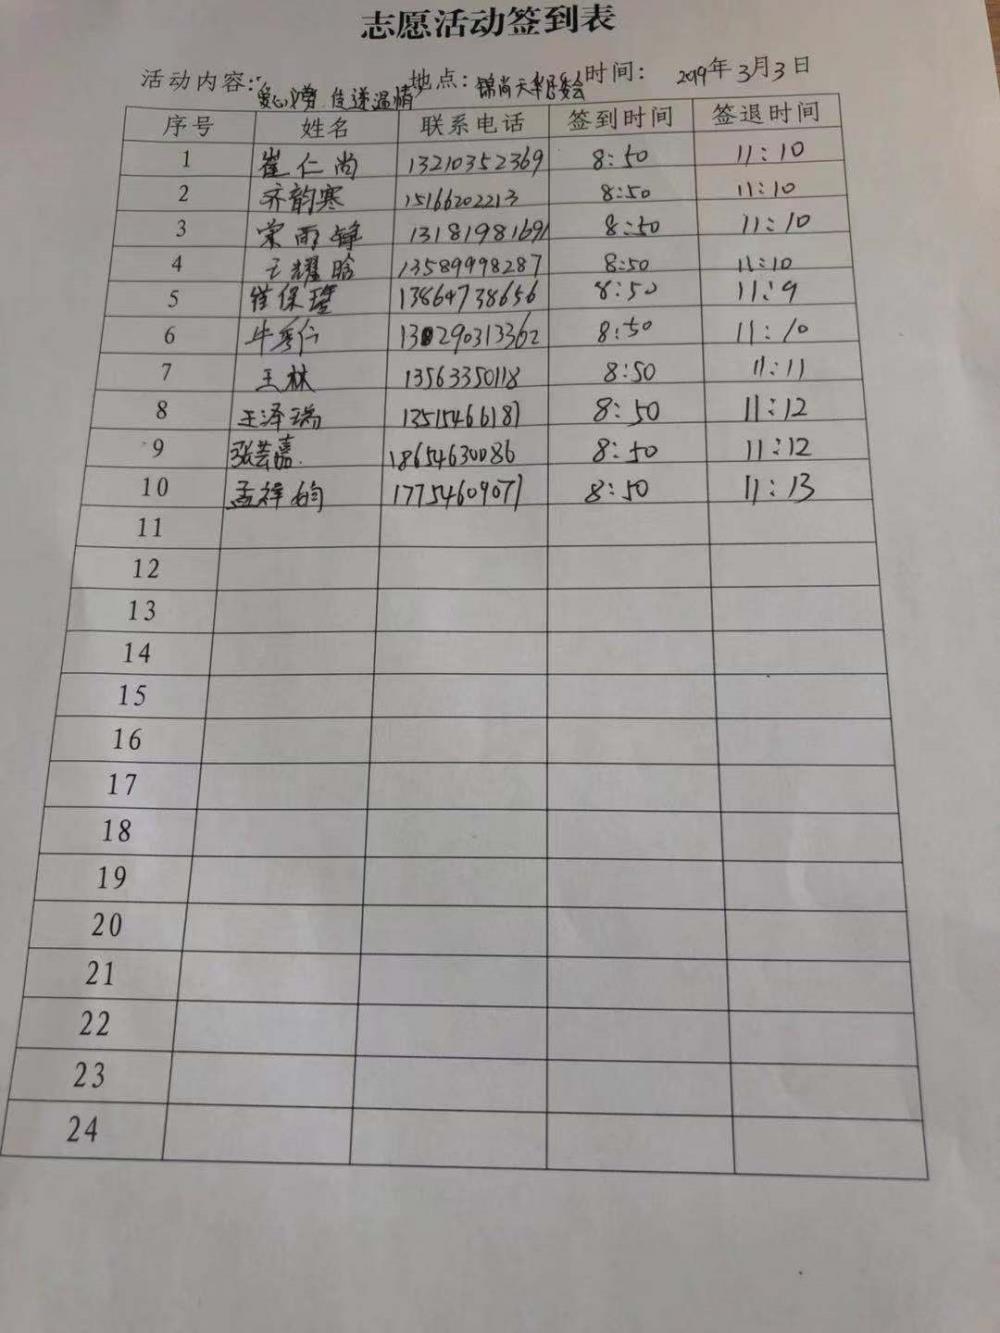 志愿活动签到表
活动内容:"爱心涌 传递温情" 地点:锦尚天华居委会 时间: 2019年3月3日
序号 姓名 联系电话 签到时间 签退时间
1 崔仁尚 13210352369 8:50 11:10
2 齐韵寒 15166202213 8:50 11:10
3 荣雨锋 13181981691 8:50 11:10
4 王耀晗 13589998287 8:50 11:10
5 崔保 13864738656 8:50 11:9
6 牛秀仁 13290313362 8:50 11:10
7 王林 13563350118 8:50 11:11
8 王泽瑞 13515466187 8:50 11:12
9 张芸嘉 18654630086 8:50 11:12
10 孟祥韵 17754609077 8:50 11:13
11
12
13
14
15
16
17
18
19
20
21
22
23
24